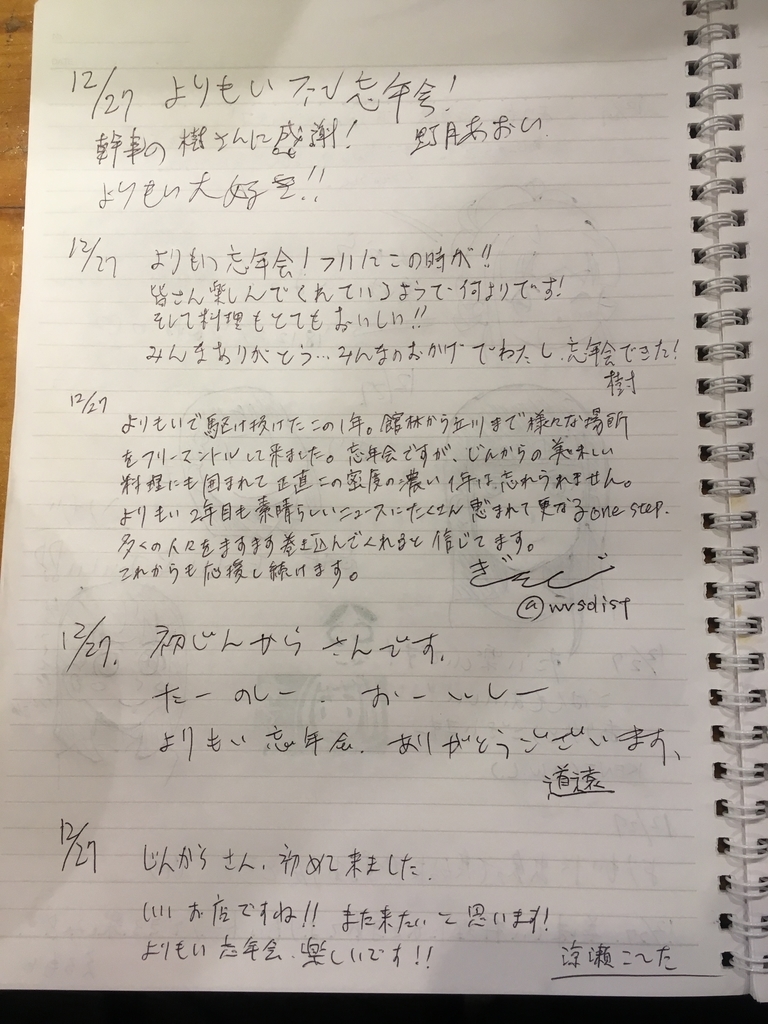 12/27 よりもいファン忘年会!
幹事の樹さんに感謝! 野月あおい
よりもい大好き!!
12/27 よりもい忘年会!ついにこの時が!!
皆さん楽しんでくれているようで何よりです!
そして料理もとてもおいしい!!
みんなありがとう…みんなのおかげでわたし、忘年会できた!
樹
12/27
よりもいで駆け抜けたこの1年。館林から立川まで様々な場所
をフリーマントルして来ました。忘年会ですが、じんからの美味しい
料理にも囲まれて正直この密度の濃い1年は忘れられません。
よりもい2年目も素晴らしいニュースにたくさん恵まれて更なるone step.
多くの人々をますます巻き込んでくれると信じてます。
これからも応援し続けます。
@nvsdist
12/27. 初じんからさんです。
たーのしー. おーいしー
よりもい忘年会. ありがとうございます。
道遠
12/27 じんからさん、初めて来ました.
いいお店ですね!! また来たいと思います!
よりもい忘年会、楽しいです!!
涼瀬こした